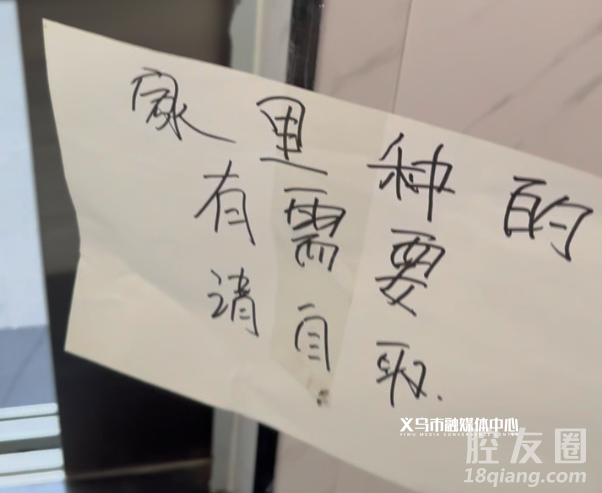 家里种的
有需要
请自取.
义乌市融媒体中心
YIWU MEDIA CONVERGENCE CENTER
腔友圈
18qiang.com